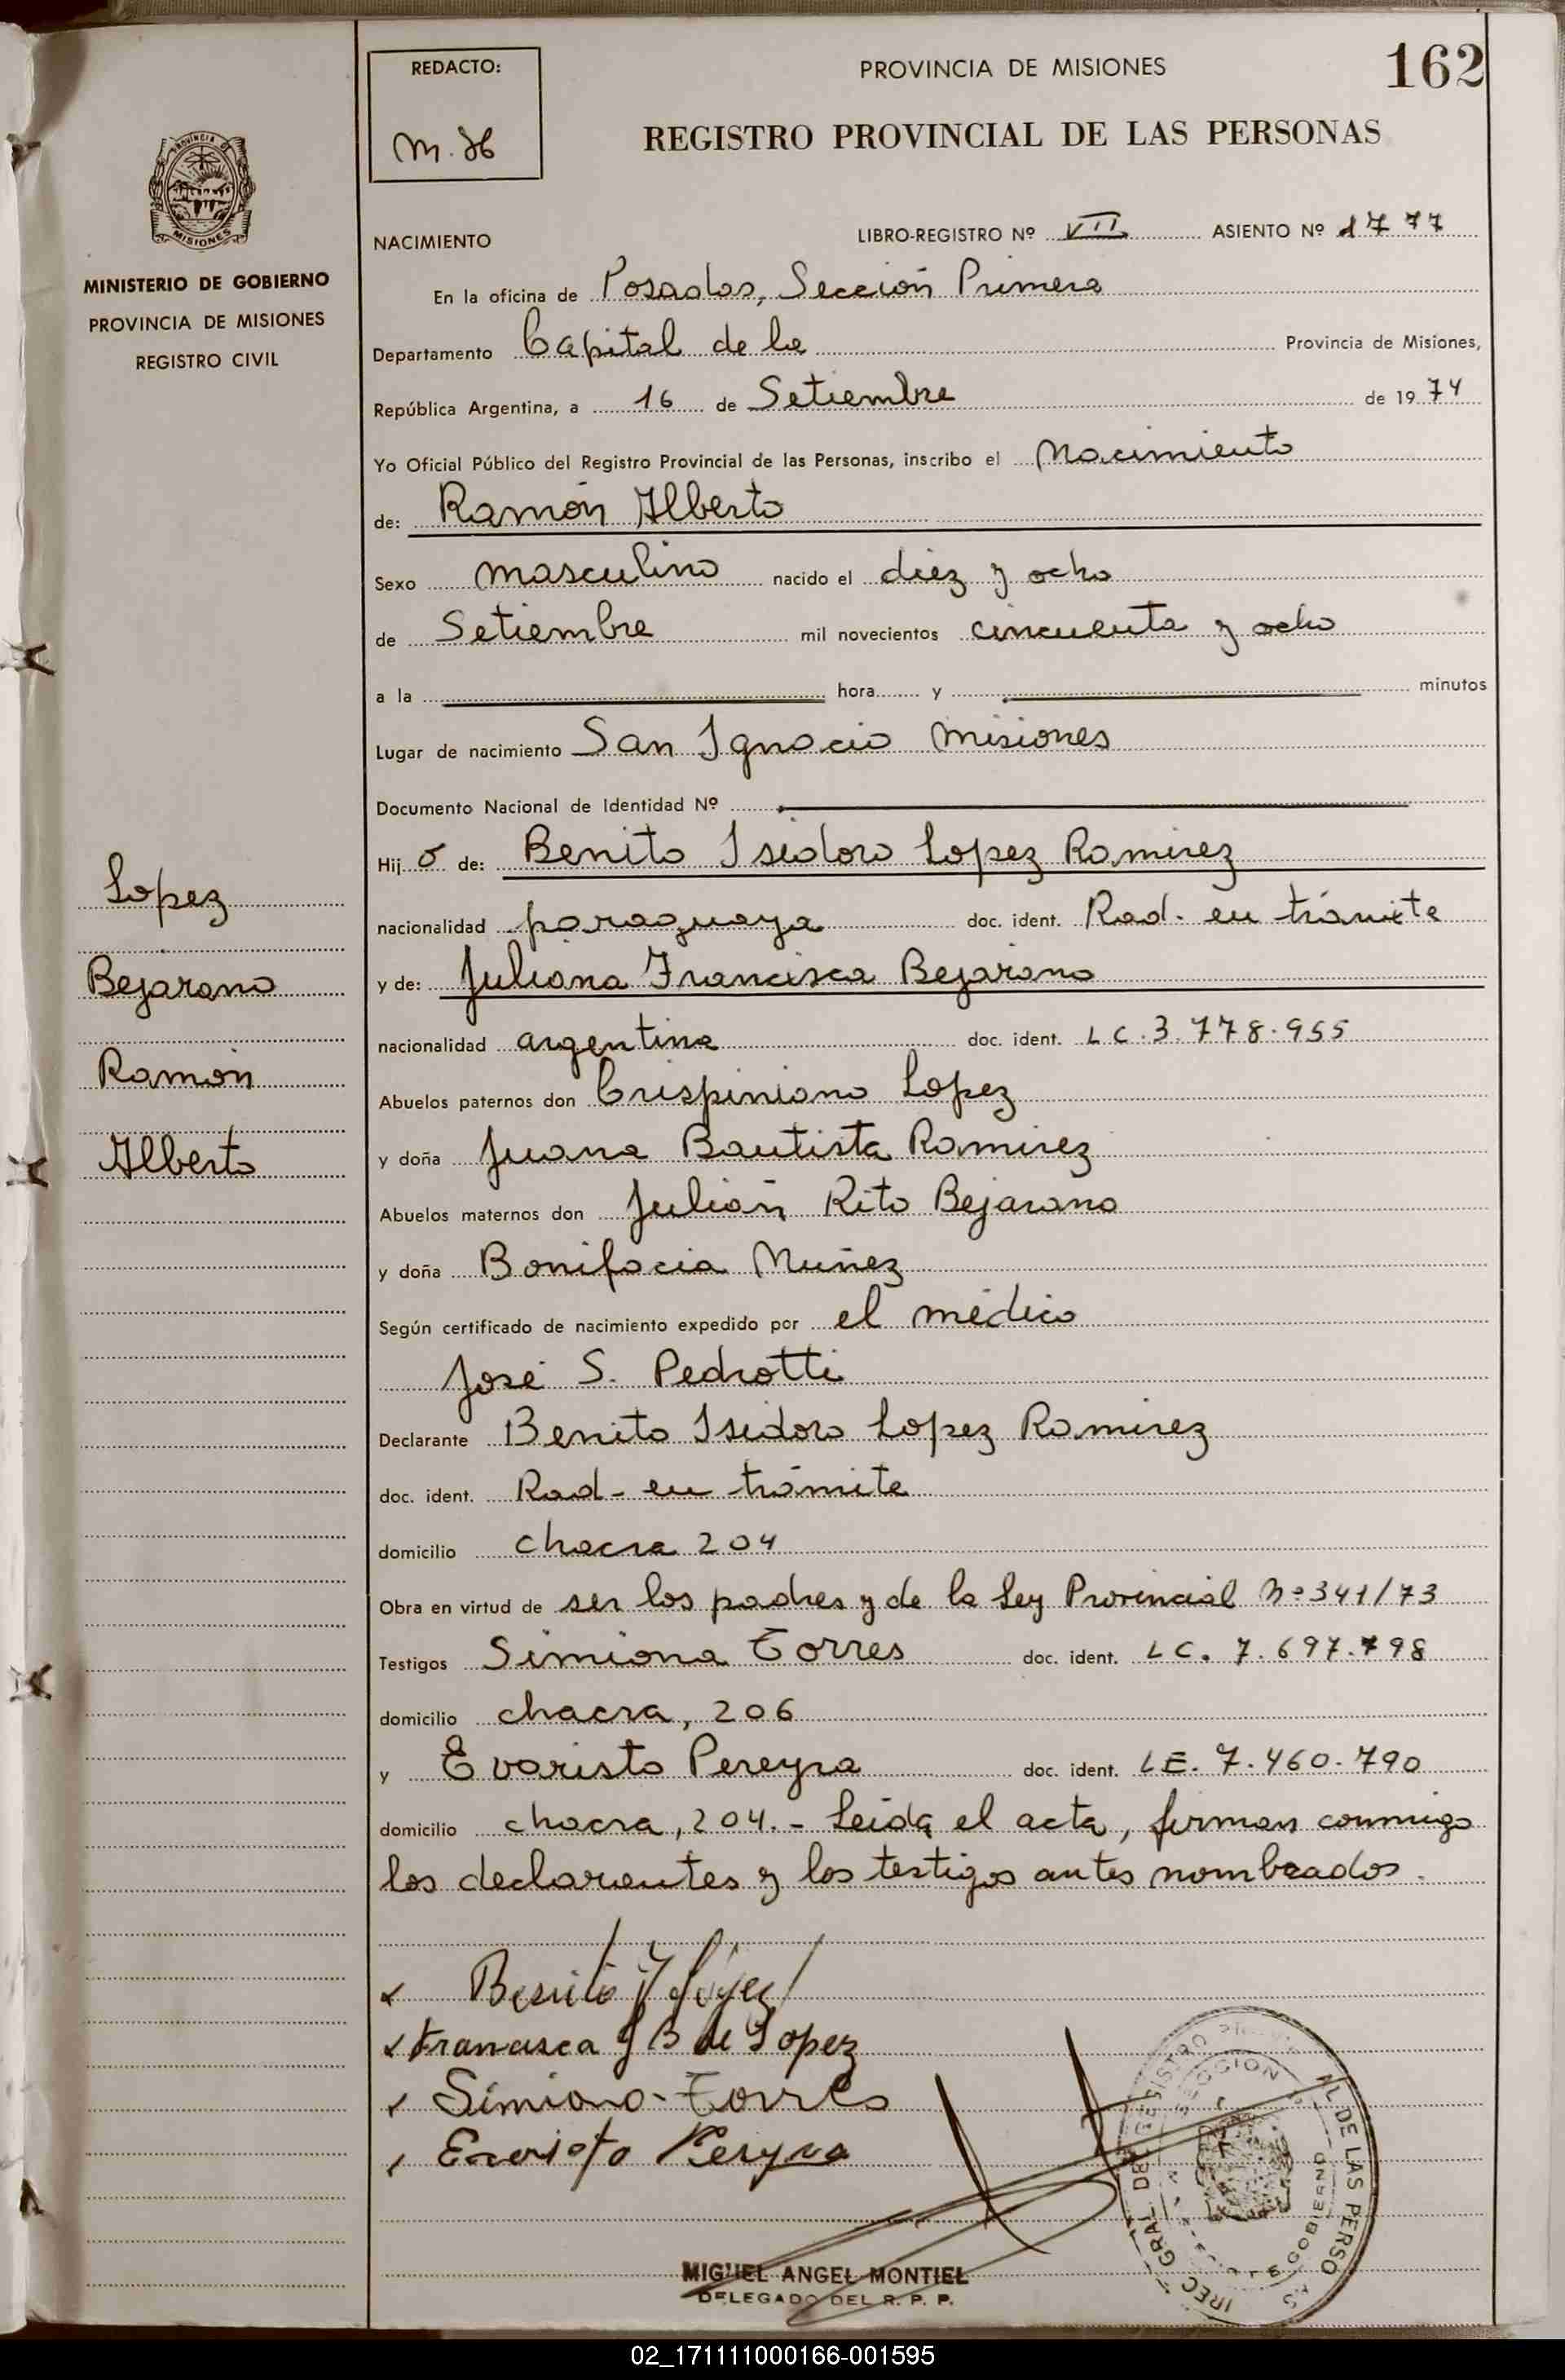 162
REDACTO:
M. H
PROVINCIA DE MISIONES
REGISTRO PROVINCIAL DE LAS PERSONAS
PROVINCIA DE
MISIONES
MINISTERIO DE GOBIERNO
PROVINCIA DE MISIONES
REGISTRO CIVIL
NACIMIENTO
LIBRO-REGISTRO Nº VII ASIENTO Nº 1777
En la oficina de Posadas, Sección Primera
Departamento Capital de la Provincia de Misiones,
República Argentina, a 16 de Setiembre de 1974
Yo Oficial Público del Registro Provincial de las Personas, inscribo el Nacimiento
de: Ramón Alberto
Sexo masculino nacido el diez y ocho
de Setiembre mil novecientos cincuenta y ocho
a la hora y minutos
Lugar de nacimiento San Ignacio Misiones
Documento Nacional de Identidad Nº
Hij o de: Benito Isidoro Lopez Ramirez
nacionalidad paraguaya doc. ident. Rad. en trámite
y de: Juliana Francisca Bejarano
nacionalidad argentina doc. ident. LC. 3.778.955
Abuelos paternos don Crispiniano Lopez
y doña Juana Bautista Ramirez
Abuelos maternos don Julián Rito Bejarano
y doña Bonifacia Nuñez
Según certificado de nacimiento expedido por el médico
José S. Pedrotti
Declarante Benito Isidoro Lopez Ramirez
doc. ident. Rad- en trámite
domicilio chacra 204
Obra en virtud de ser los padres y de la Ley Provincial Nº 341/73
Testigos Simiona Torres doc. ident. LC. 7.697.798
domicilio chacra, 206
y Evaristo Pereyra doc. ident. LE. 7.460.790
domicilio chacra, 204.- Leida el acta, firman conmigo
los declarantes y los testigos antes nombrados.
Lopez
Bejarano
Ramón
Alberto
Benito Y López
Francisca J B de Lopez
Simiona Torres
Evaristo Pereyra
MIGUEL ANGEL MONTIEL
DELEGADO DEL R. P. P.
02_171111000166-001595